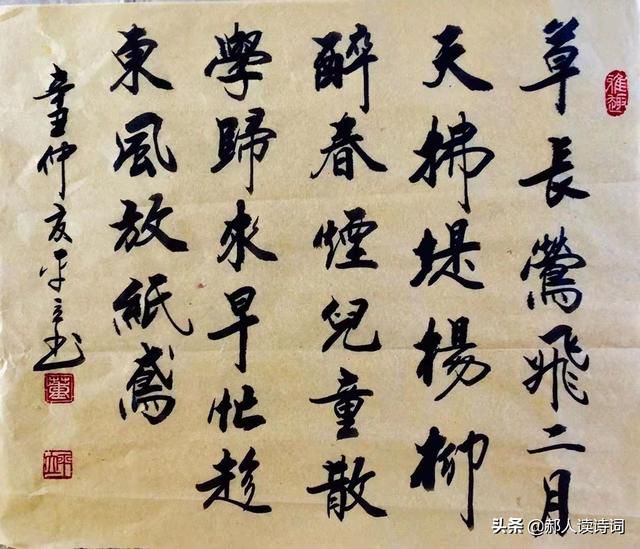 雅趣
草長鶯飛二月
天拂堤楊柳
醉春煙兒童散
學歸來早忙趁
東風放紙鳶
辛丑仲夏平立书
董
头条 @郝人读诗词